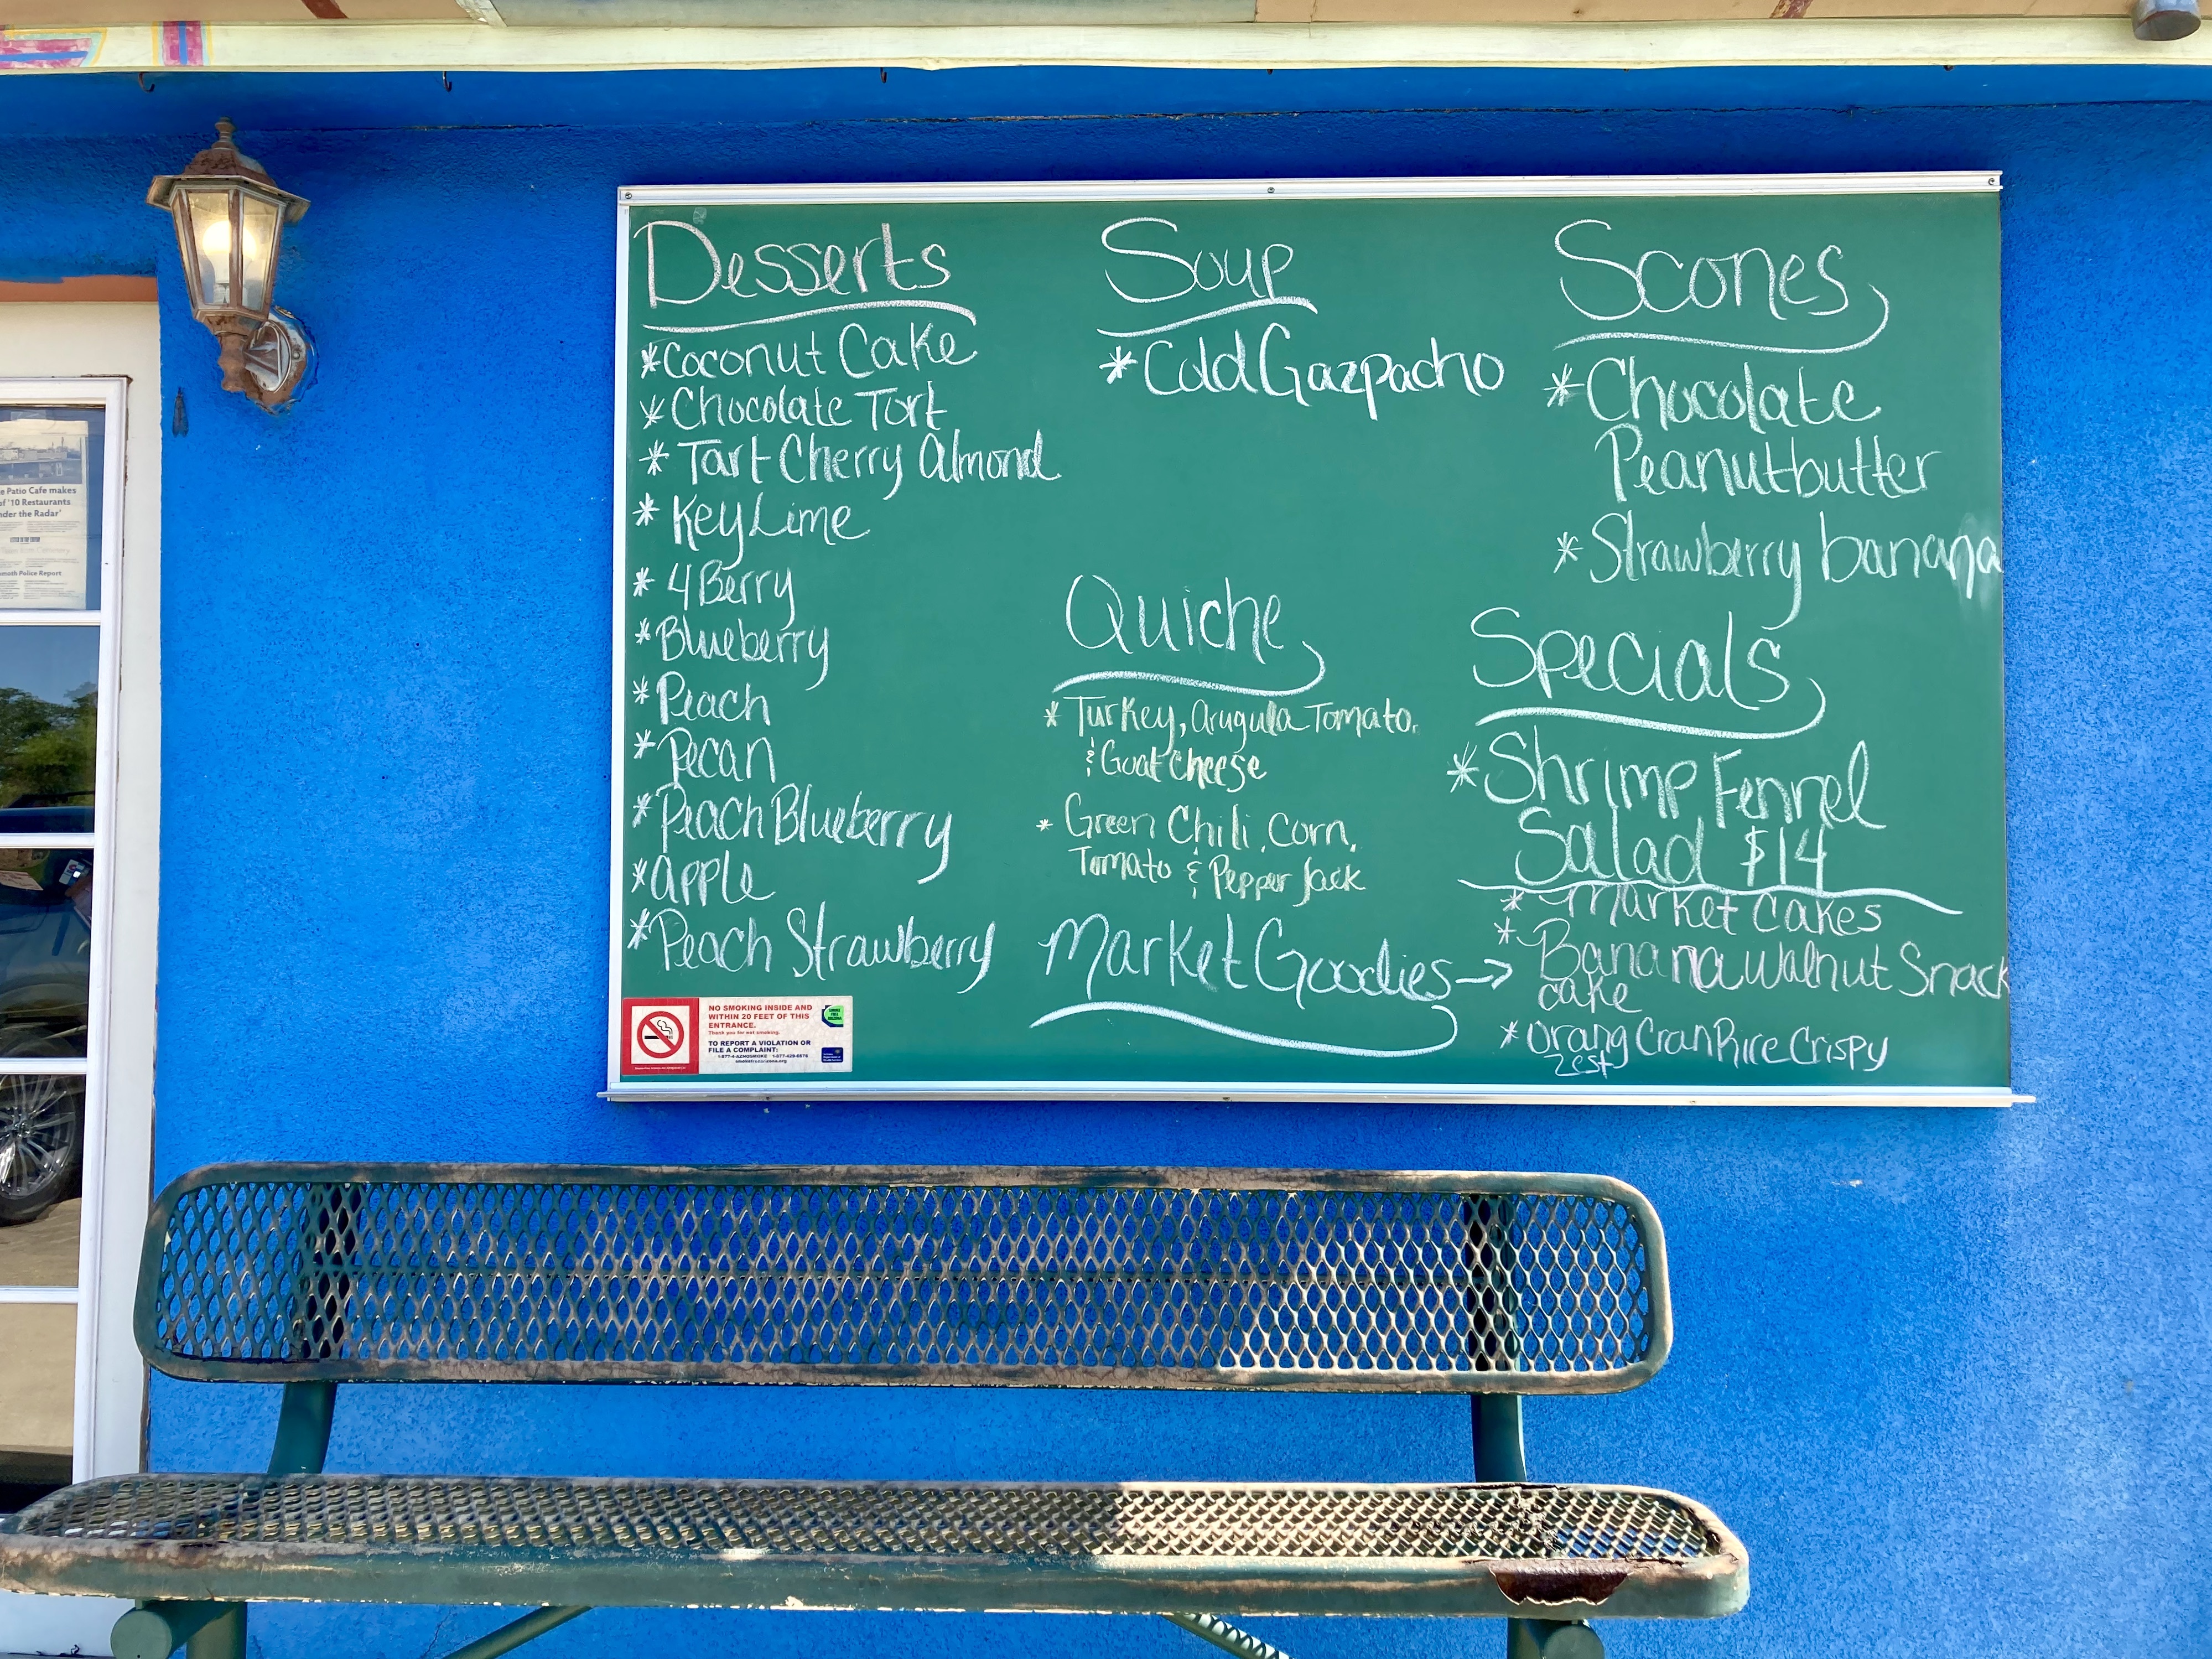 Desserts
*Coconut Cake
*Chocolate Tort
*Tart Cherry Almond
*Key Lime
*4 Berry
*Blueberry
*Peach
*Pecan
*Peach Blueberry
*apple
*Peach Strawberry
Soup
*Cold Gazpacho
Quiche
*Turkey, Arugula Tomato,
& Goat Cheese
*Green Chili, Corn,
Tomato & Pepper Jack
Market Goodies →
Scones
*Chocolate
Peanutbutter
*Strawberry banana
Specials
*Shrimp Fennel
Salad $14
*Market Cakes
*Banana Walnut Snack
cake
*Orang Cran Rice Crispy
Zest
NO SMOKING INSIDE AND
WITHIN 20 FEET OF THIS
ENTRANCE.
Thank you for not smoking.
TO REPORT A VIOLATION OR
FILE A COMPLAINT:
1-877-4-AZNOSMOKE 1-877-429-6676
smokefreearizona.org
e Patio Cafe makes
of '10 Restaurants
nder the Radar'
moth Police Report